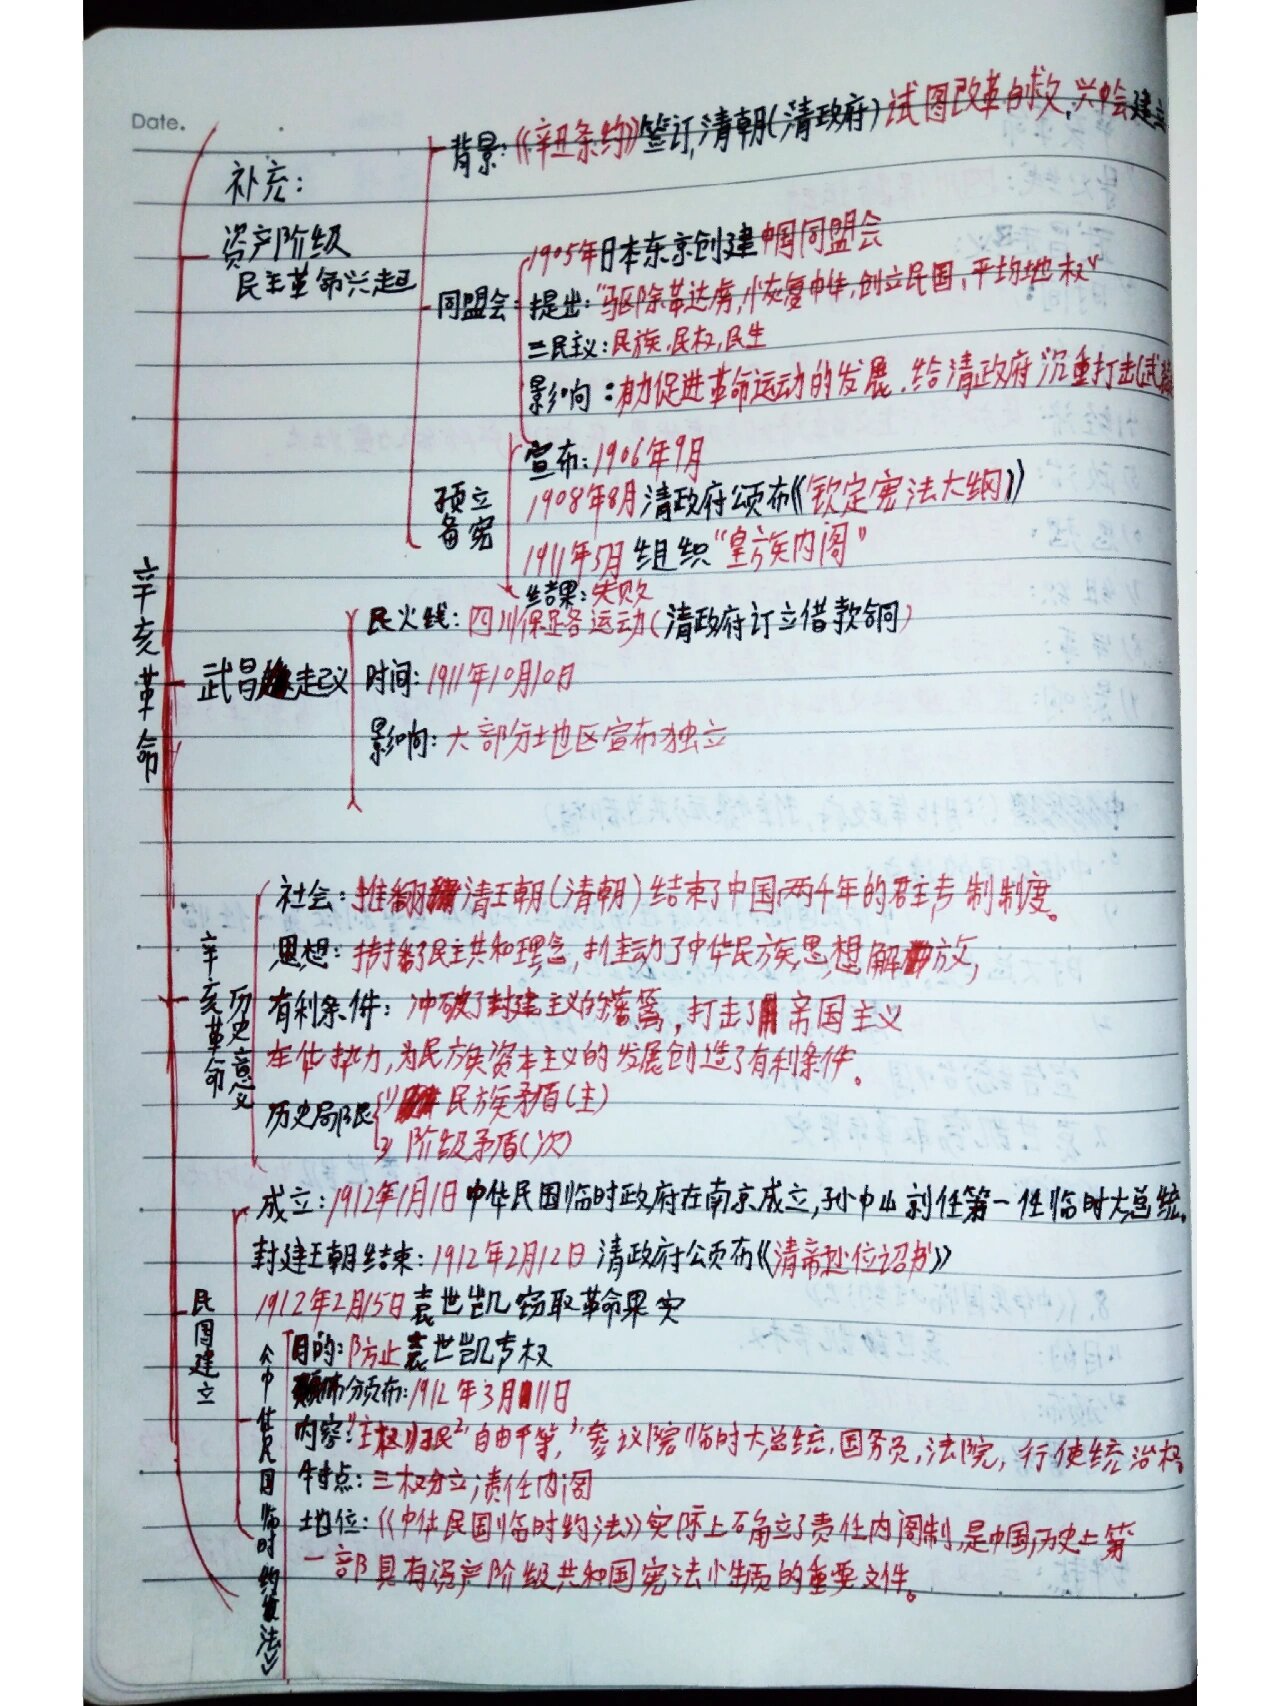 Date.
背景:《辛丑条约》签订,清朝(清政府)试图改革自救,兴中会建立
补充:
资产阶级
民主革命兴起
1905年日本东京创建中国同盟会
同盟会
提出:"驱除鞑虏,恢复中华,创立民国,平均地权"
三民主义:民族,民权,民生
影响:有力促进革命运动的发展,给清政府沉重打击
宣布:1906年9月
预立
备宪
1908年8月清政府颁布《钦定宪法大纲》
1911年5月组织"皇族内阁"
结果:失败
辛亥革命
武昌起义
民火线:四川保路运动(清政府订立借款合同)
时间:1911年10月10日
影响:大部分地区宣布独立
辛亥革命
历史意义
社会:推翻清王朝(清朝)结束了中国两千年的君主专制制度。
思想:传播了民主共和理念,推动了中华民族思想解放,
有利条件:冲破了封建主义的藩篱,打击了帝国主义
在华势力,为民族资本主义的发展创造了有利条件。
历史局限
1)民族矛盾(主)
2)阶级矛盾(次)
民国建立
成立:1912年1月1日中华民国临时政府在南京成立,孙中山就任第一任临时大总统。
封建王朝结束:1912年2月12日清政府颁布《清帝退位诏书》
1912年2月15日袁世凯窃取革命果实
《中华民国临时约法》
目的:防止袁世凯专权
颁布:1912年3月11日
内容:1主权归民2自由平等,3参议院临时大总统,国务员,法院,行使统治权
特点:三权分立,责任内阁
地位:《中华民国临时约法》实际上确立了责任内阁制,是中国历史上第
一部具有资产阶级共和国宪法性质的重要文件。